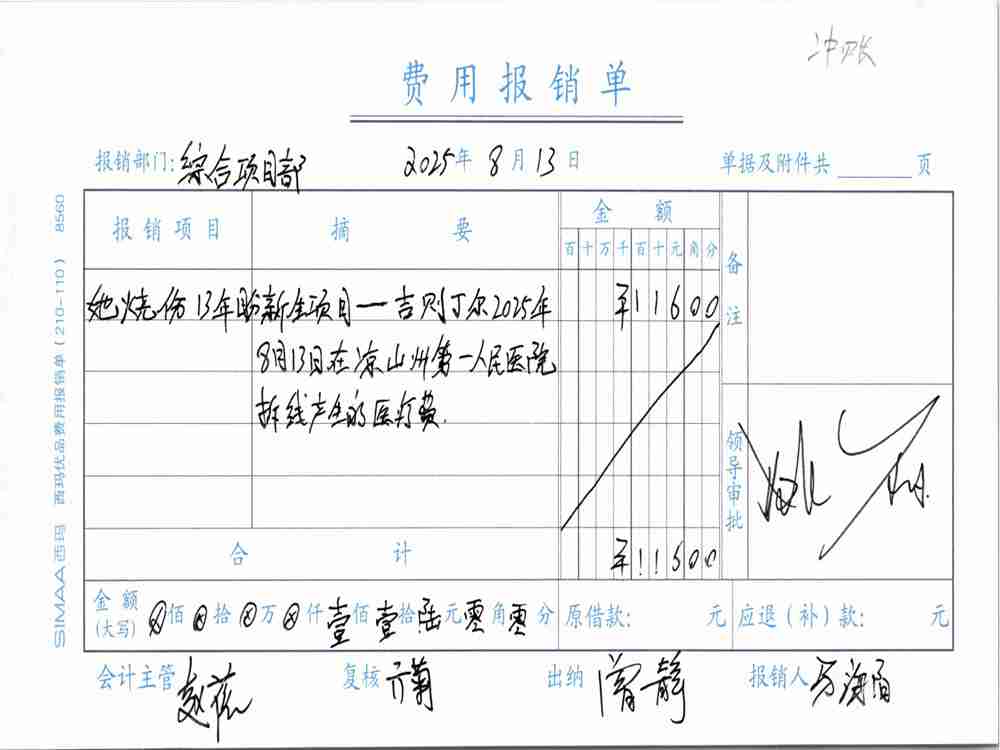 冲账
费用报销单
报销部门:综合项目部 2025年 8月13日 单据及附件共 页
报销项目 摘要 金额 备注
百十万千百十元角分
她烧伤13年盼新生项目一吉则丁尔2025年 ¥11600
8月13日在凉山州第一人民医院
拆线产生的医疗费.
领导审批
合计 ¥11600
金额(大写) ⊗佰⊗拾⊗万⊗仟壹佰壹拾陆元零角零分 原借款: 元 应退(补)款: 元
会计主管 复核 出纳 曾静 报销人
SIMAA西玛 西玛优品费用报销单(210-110) 8560